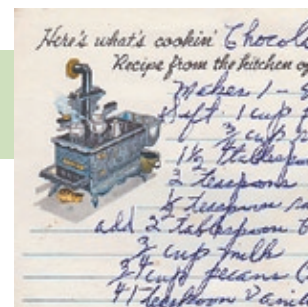 Here's what's cookin' Chocol
Recipe from the kitchen of
Makes 1 - 8
Sift 1 cup f
3/4 cup
1 1/2 tablesp
2 teaspoons
1/2 teaspoon sa
add 2 tablespoon
3/4 cup milk
3/4 cup pecans
1 teaspoon vani